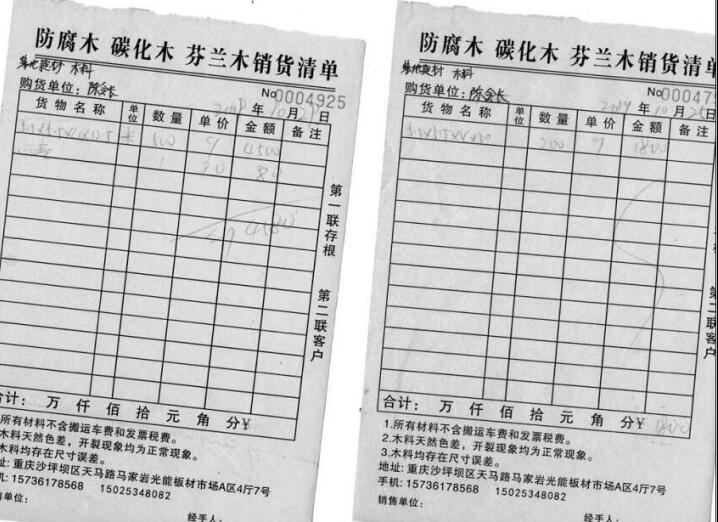 防腐木 碳化木 芬兰木销货清单
木料
No0004925
购货单位：陈会长
年10月 日
货物名称 单位 数量 单价 金额 备注
米 500 9 4500
1 80 80
4580
第一联存根
第二联客户
合计： 万 仟 佰 拾 元 角 分¥
所有材料不含搬运车费和发票税费。
木料天然色差，开裂现象均为正常现象。
木料均存在尺寸误差。
地址: 重庆沙坪坝区天马路马家岩光能板材市场A区4厅7号
机: 15736178568 15025348082
单位：
经手人：
防腐木 碳化木 芬兰木销货清单
木料
No00047
购货单位：陈会长
2019年10月25日
货物名称 单位 数量 单价 金额 备注
200 9 1800
存根
第二联客户
合计： 万 仟 佰 拾 元 角 分¥ 1800
1.所有材料不含搬运车费和发票税费。
2.木料天然色差，开裂现象均为正常现象。
3.木料均存在尺寸误差。
地址: 重庆沙坪坝区天马路马家岩光能板材市场A区4厅7号
手机: 15736178568 15025348082
销售单位：
经手人：